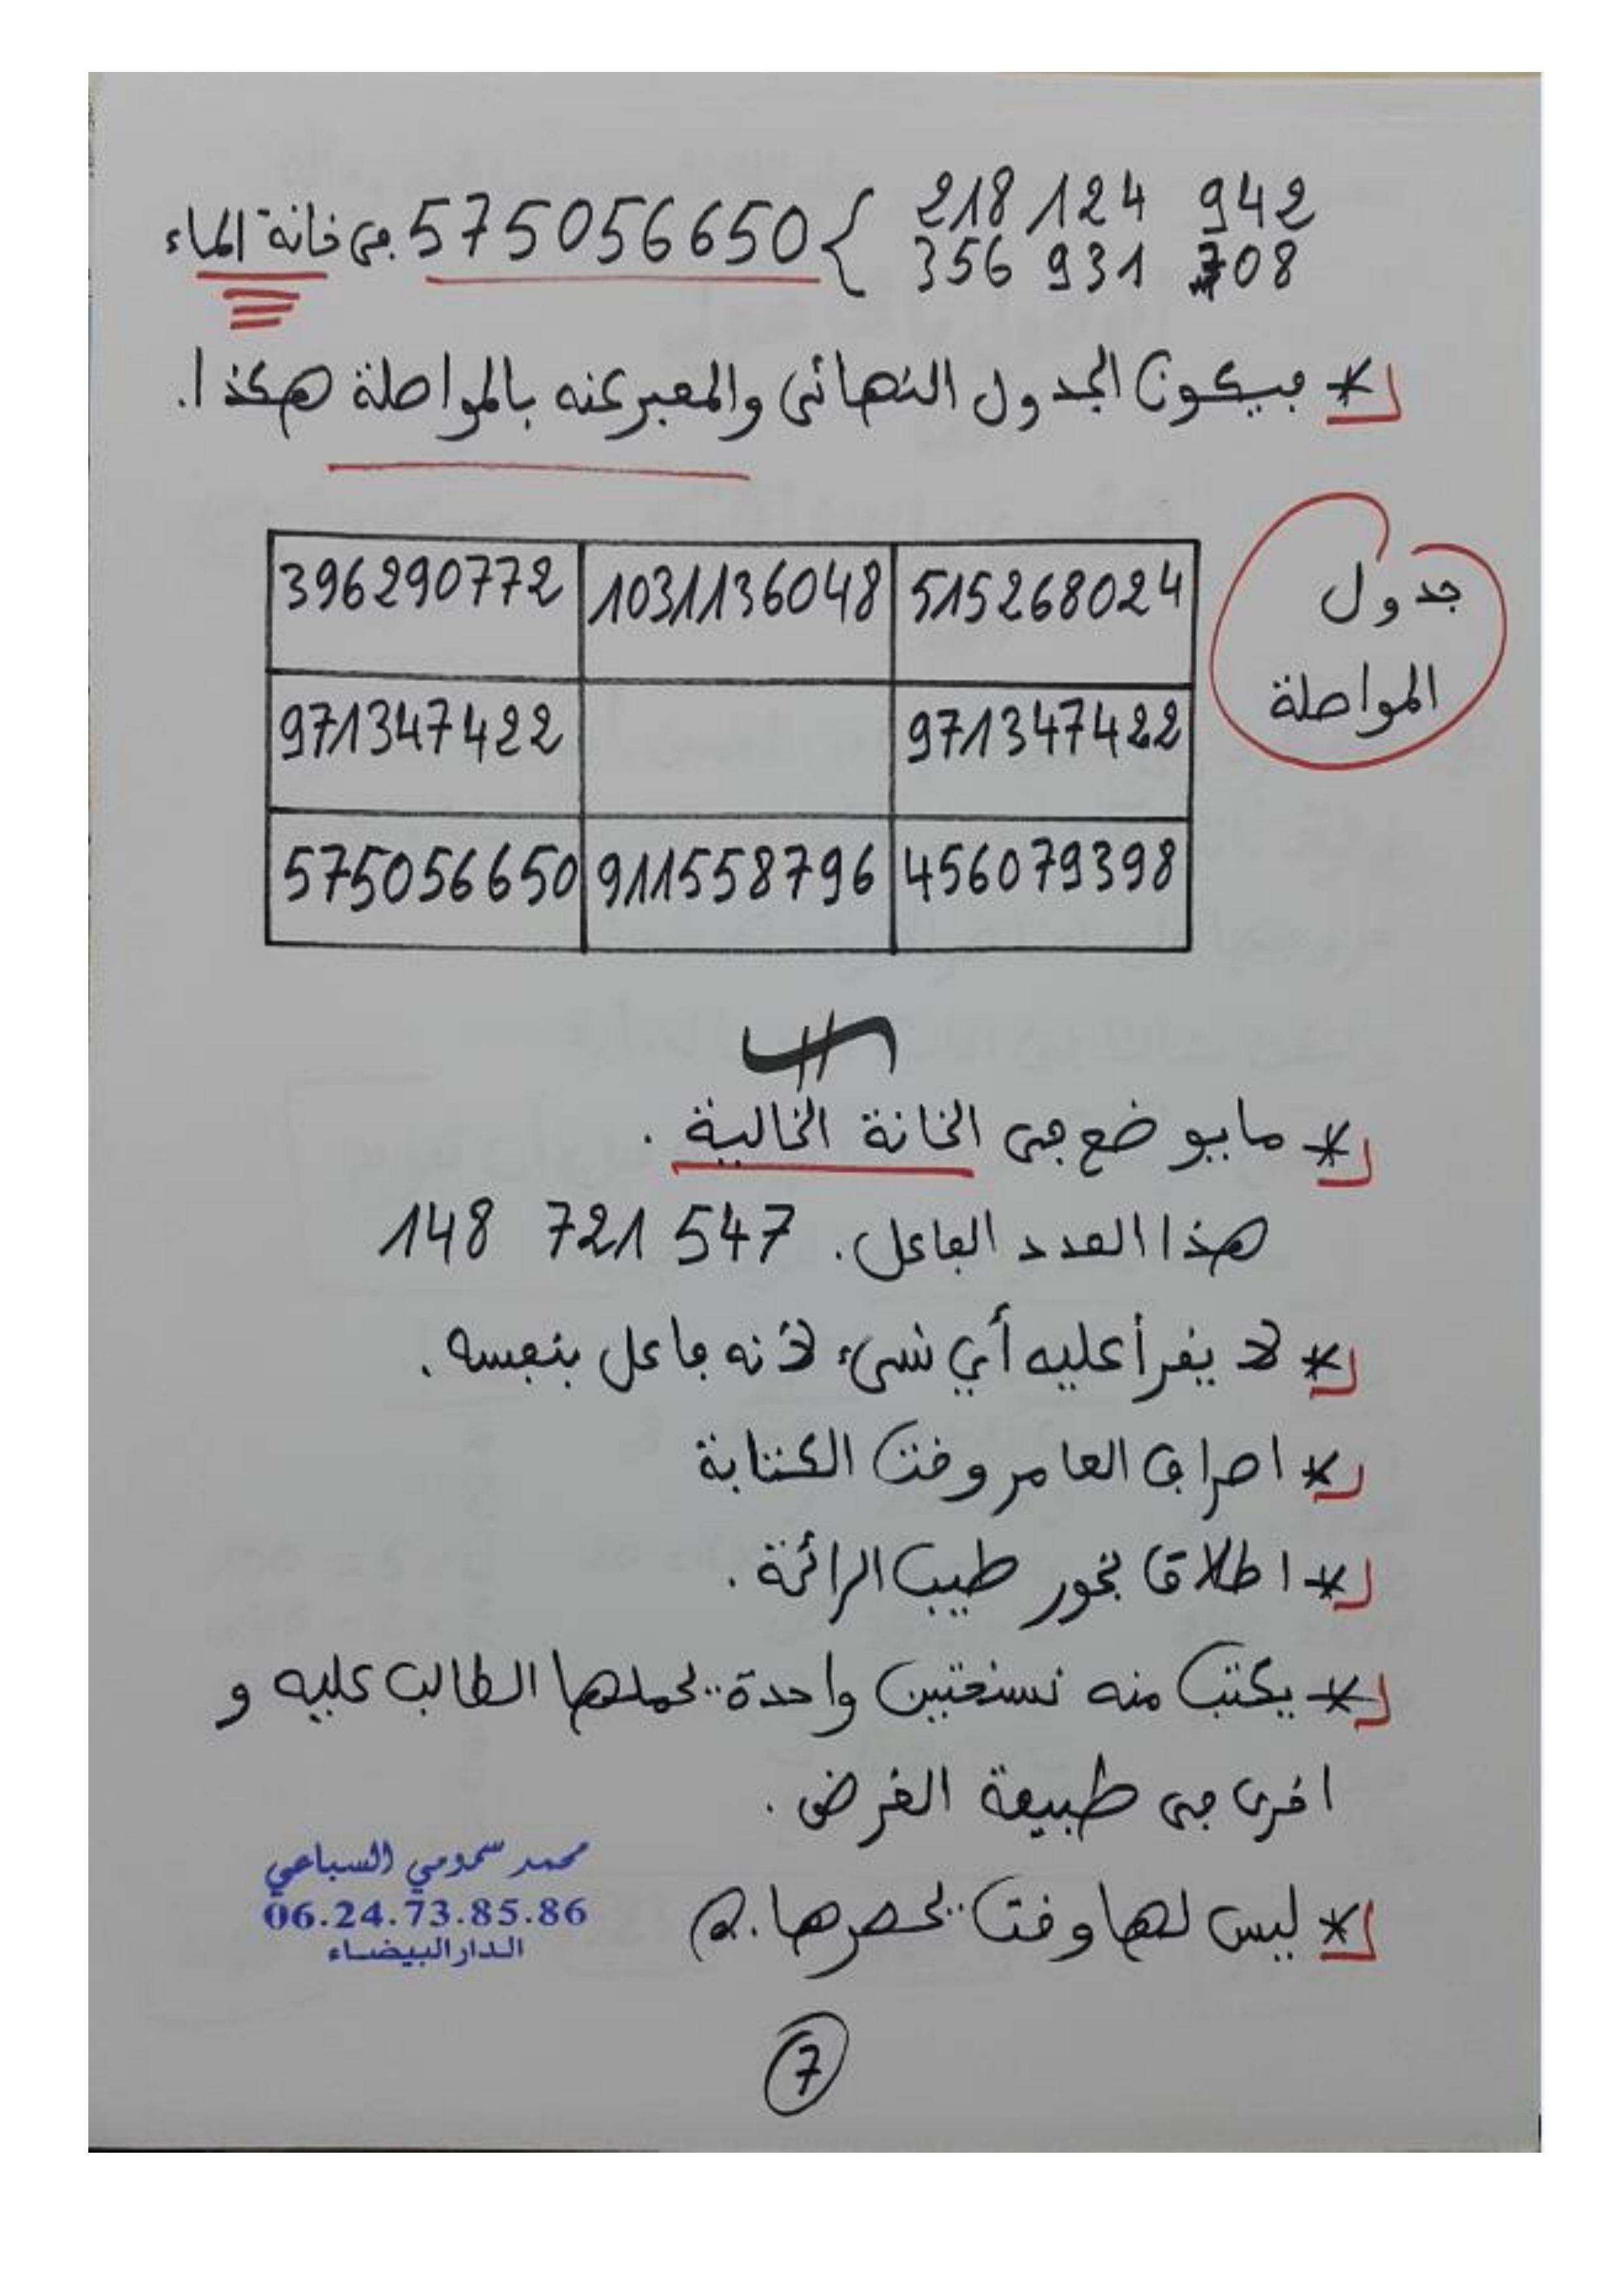 218 124 942
356 931 708 } 575056650 في خانة الماء
* فيكون الجدول النهائي والمعبر عنه بالمواصلة هكذا.
جدول
المواصلة
396290772 10311136048 515268024
971347422 971347422
575056650 911558796 456079398
* ما يوضع في الخانة الخالية.
هذا العدد الفاعل. 547 721 148
* لا يقرأ عليه أي شيء لأنه فاعل بنفسه.
* اصراف العامر وقت الكتابة
* اطلاق بخور طيب الرائحة.
* يكتب منه نسختين واحدة يحملها الطالب عليه و
اخرى في طبيعة الغرض.
* ليس لها وقت يحصرها.
محمد سمومي السباعي
06.24.73.85.86
الدار البيضاء
7